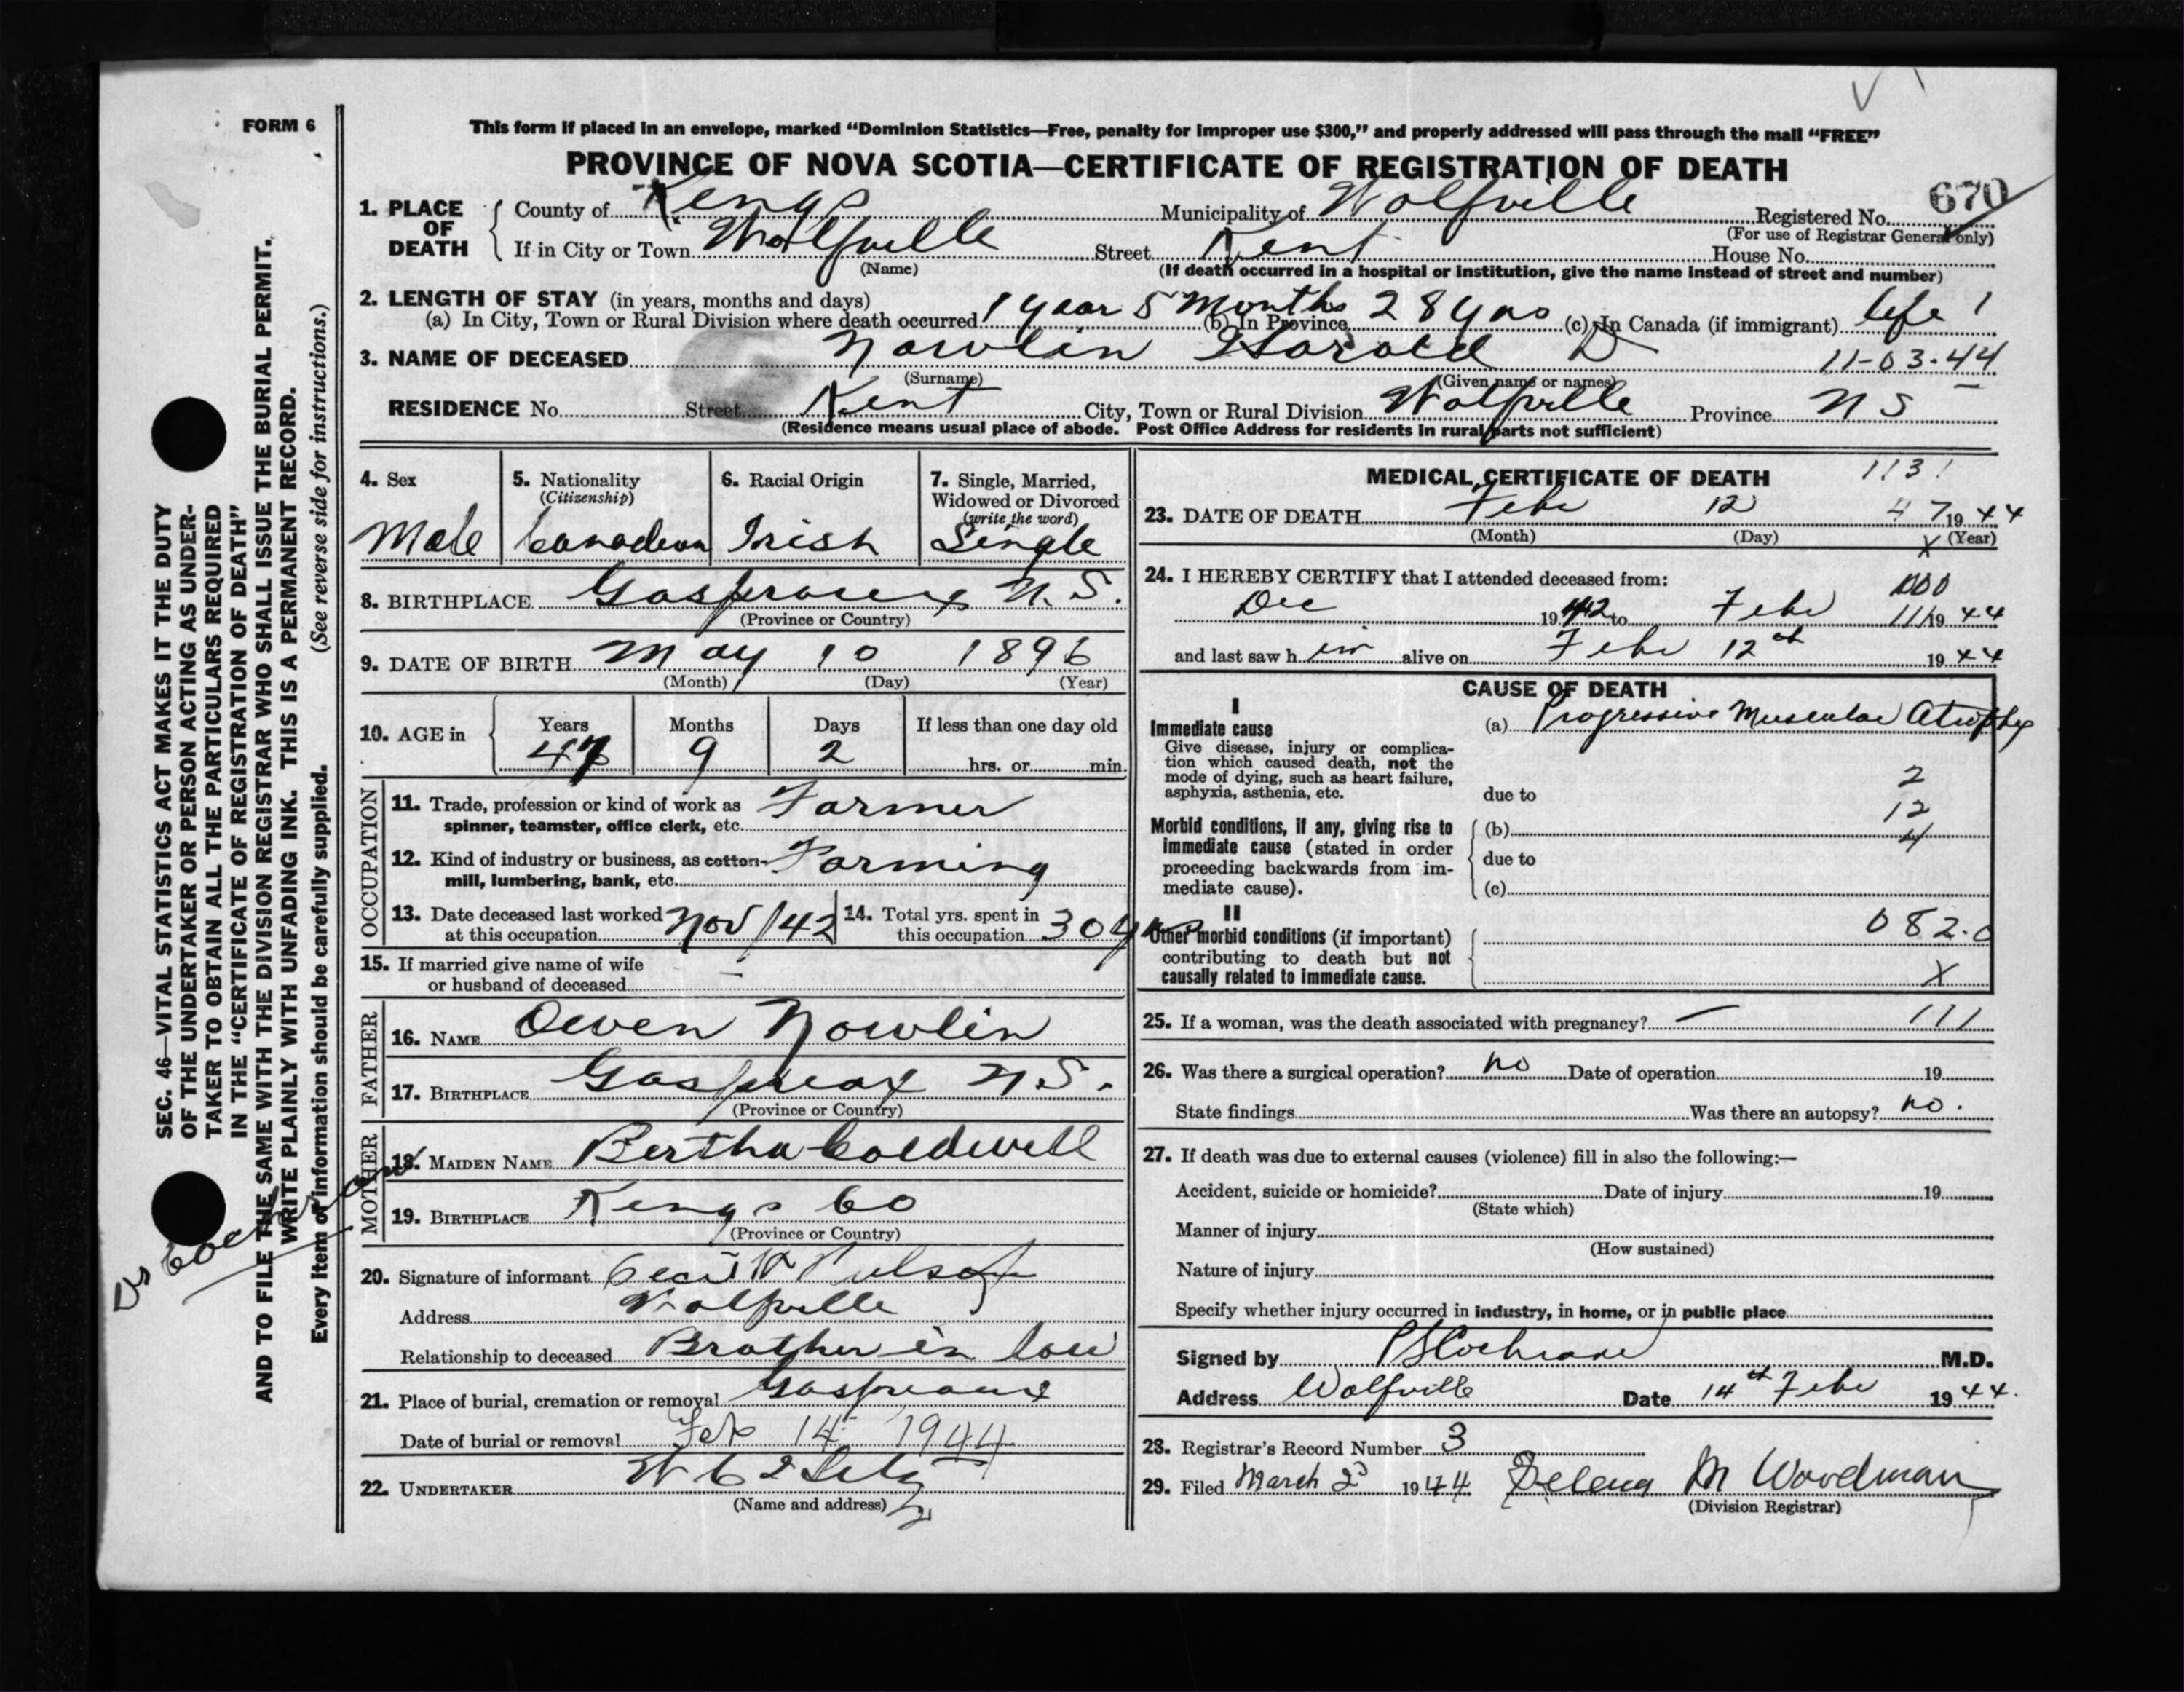 FORM 6
This form if placed in an envelope, marked “Dominion Statistics—Free, penalty for improper use $300,” and properly addressed will pass through the mail “FREE”
PROVINCE OF NOVA SCOTIA—CERTIFICATE OF REGISTRATION OF DEATH
670
1. PLACE OF DEATH
County of Kings Municipality of Wolfville Registered No.
(For use of Registrar General only)
If in City or Town Wolfville Street Kent House No.
(Name) (If death occurred in a hospital or institution, give the name instead of street and number)
2. LENGTH OF STAY (in years, months and days)
(a) In City, Town or Rural Division where death occurred 1 year 5 Months (b) In Province 28 yrs (c) In Canada (if immigrant) life 1
3. NAME OF DECEASED Nowlin Harold D 11-03-44
(Surname) (Given name or names)
RESIDENCE No. Street Kent City, Town or Rural Division Wolfville Province N S
(Residence means usual place of abode. Post Office Address for residents in rural parts not sufficient)
4. Sex
Male
5. Nationality
(Citizenship)
Canadian
6. Racial Origin
Irish
7. Single, Married,
Widowed or Divorced
(write the word)
Single
8. BIRTHPLACE Gaspreaux N. S.
(Province or Country)
9. DATE OF BIRTH May 10 1896
(Month) (Day) (Year)
10. AGE in Years Months Days If less than one day old
47 9 2 hrs. or min.
OCCUPATION
11. Trade, profession or kind of work as Farmer
spinner, teamster, office clerk, etc.
12. Kind of industry or business, as cotton- Farming
mill, lumbering, bank, etc.
13. Date deceased last worked
at this occupation Nov/42
14. Total yrs. spent in
this occupation 30 yrs
15. If married give name of wife
or husband of deceased —
FATHER
16. NAME Owen Nowlin
17. BIRTHPLACE Gaspreax N.S.
(Province or Country)
MOTHER
18. MAIDEN NAME Bertha Coldwell
19. BIRTHPLACE Kings Co
(Province or Country)
20. Signature of informant Cecil
Address Wolfville
Relationship to deceased Brother in law
21. Place of burial, cremation or removal Gaspreaux
Date of burial or removal Feb 14 1944
22. UNDERTAKER W C
(Name and address)
MEDICAL CERTIFICATE OF DEATH 113!
23. DATE OF DEATH Feb 12 47 1944
(Month) (Day) X (Year)
24. I HEREBY CERTIFY that I attended deceased from: 000
Dec 1942 to Feb 11/1944
and last saw him alive on Feb 12th 1944
CAUSE OF DEATH
I
Immediate cause
Give disease, injury or complica-
tion which caused death, not the
mode of dying, such as heart failure,
asphyxia, asthenia, etc.
(a) Progressive Muscular Atrophy
2
due to
12
Morbid conditions, if any, giving rise to
immediate cause (stated in order
proceeding backwards from im-
mediate cause).
(b)
4
due to
(c)
II
Other morbid conditions (if important)
contributing to death but not
causally related to immediate cause.
082.0
X
25. If a woman, was the death associated with pregnancy? — 111
26. Was there a surgical operation? no Date of operation 19
State findings Was there an autopsy? no.
27. If death was due to external causes (violence) fill in also the following:—
Accident, suicide or homicide? Date of injury 19
(State which)
Manner of injury
(How sustained)
Nature of injury
Specify whether injury occurred in industry, in home, or in public place
Signed by Cochrane M.D.
Address Wolfville Date 14th Feb 1944.
28. Registrar's Record Number 3
29. Filed March 2 1944 M Woodman
(Division Registrar)
SEC. 46—VITAL STATISTICS ACT MAKES IT THE DUTY
OF THE UNDERTAKER OR PERSON ACTING AS UNDER-
TAKER TO OBTAIN ALL THE PARTICULARS REQUIRED
IN THE “CERTIFICATE OF REGISTRATION OF DEATH”
AND TO FILE THE SAME WITH THE DIVISION REGISTRAR WHO SHALL ISSUE THE BURIAL PERMIT.
WRITE PLAINLY WITH UNFADING INK. THIS IS A PERMANENT RECORD.
Every item of information should be carefully supplied. (See reverse side for instructions.)
Dr Cochrane